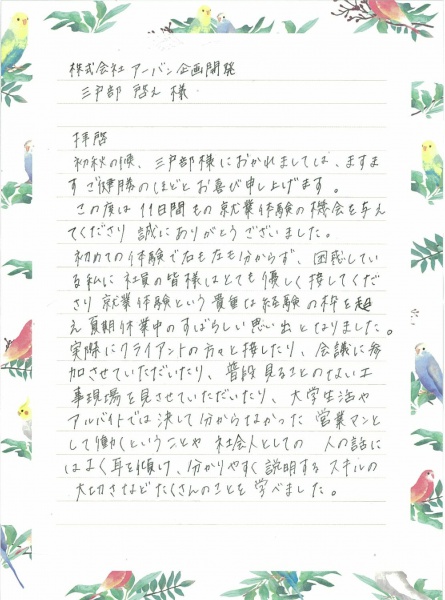 株式会社 アーバン企画開発
三戸部 啓之 様
拝啓
初秋の候、三戸部様におかれましては、ますま
すご健勝のほどとお喜び申し上げます。
この度は11日間もの就業体験の機会を与え
てくださり誠にありがとうございました。
初めての体験で右も左も分からず、困惑してい
る私に社員の皆様はとても優しく接してくだ
さり就業体験という貴重な経験の枠を超
え夏期休業中のすばらしい思い出となりました。
実際にクライアントの方々と接したり、会議に参
加させていただいたり、普段見ることのない工
事現場を見させていただいたり、大学生活や
アルバイトでは決して分からなかった営業マンと
して働くということや社会人としての人の話に
はよく耳を傾け、分かりやすく説明するスキルの
大切さなどたくさんのことを学べました。